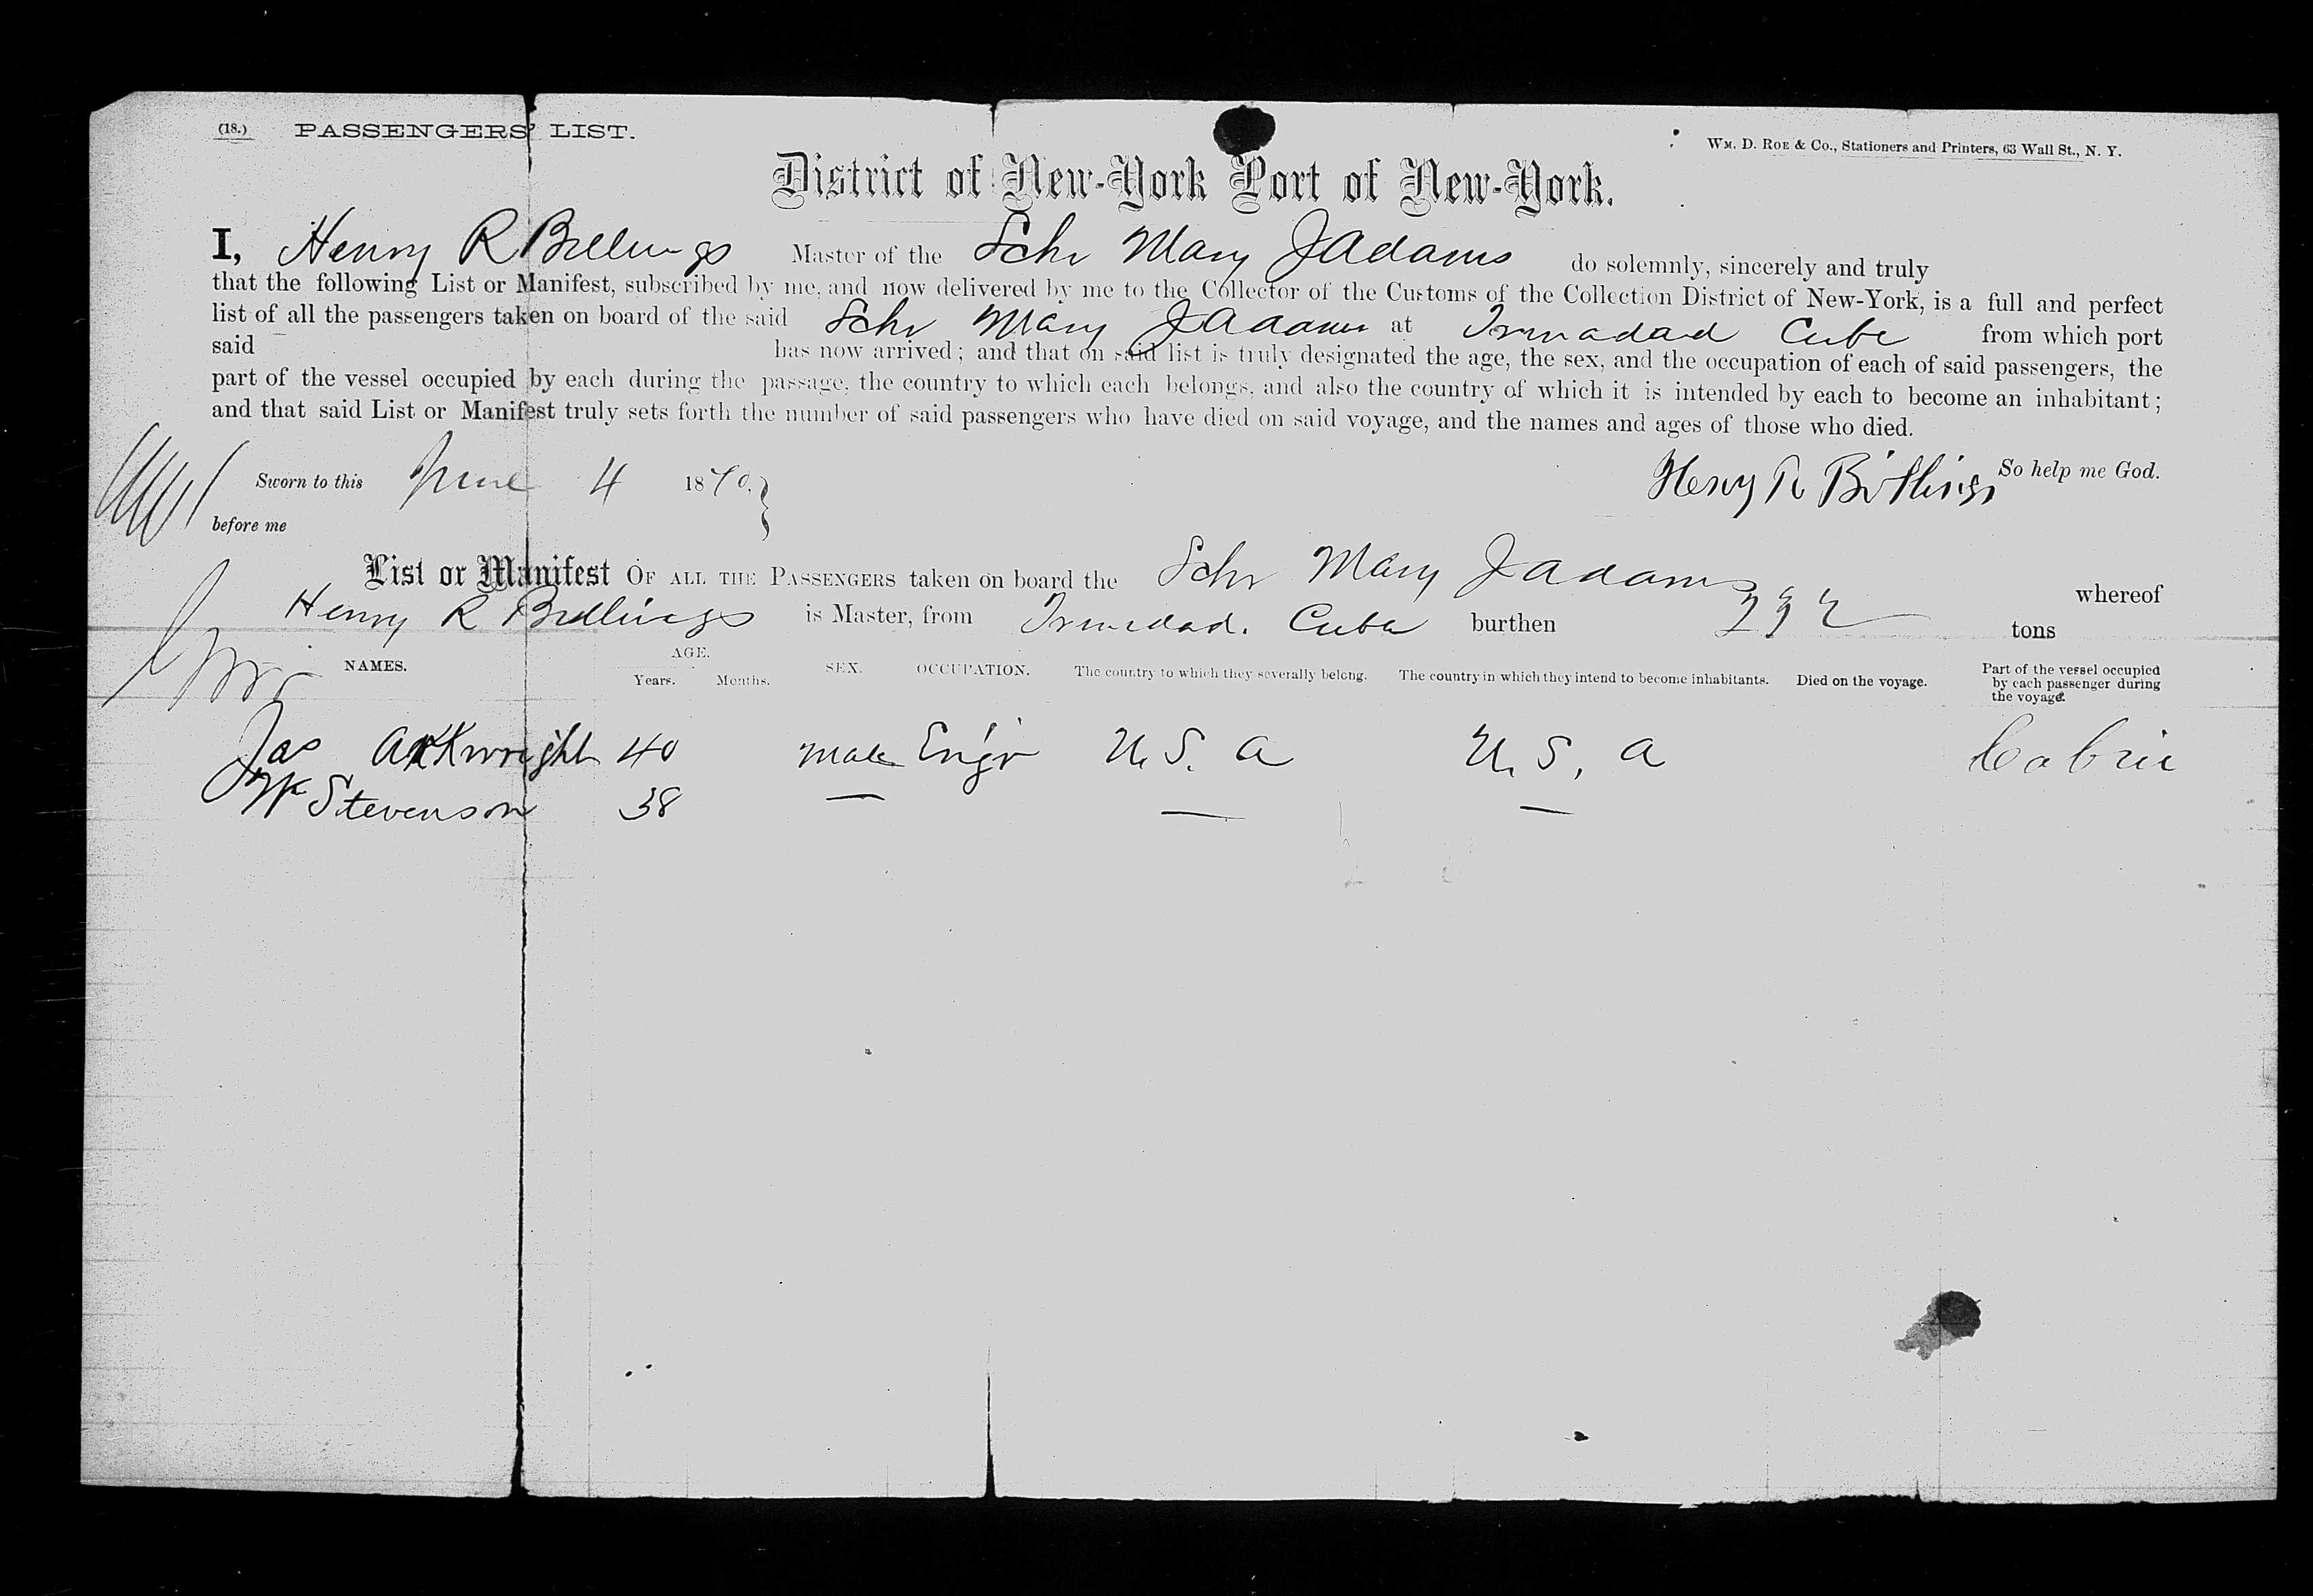 (18.) PASSENGERS' LIST.
Wm. D. Roe & Co., Stationers and Printers, 63 Wall St., N. Y.
District of New-York Port of New-York.
I, Henry R Billings Master of the Schr Mary J Adams do solemnly, sincerely and truly
that the following List or Manifest, subscribed by me, and now delivered by me to the Collector of the Customs of the Collection District of New-York, is a full and perfect
list of all the passengers taken on board of the said Schr Mary J Adams at Trinadad Cuba from which port
said has now arrived; and that on said list is truly designated the age, the sex, and the occupation of each of said passengers, the
part of the vessel occupied by each during the passage, the country to which each belongs, and also the country of which it is intended by each to become an inhabitant;
and that said List or Manifest truly sets forth the number of said passengers who have died on said voyage, and the names and ages of those who died.
Sworn to this June 4 1870. Henry R Billings So help me God.
before me
List or Manifest Of all the Passengers taken on board the Schr Mary J Adams whereof
Henry R Billings is Master, from Trinidad. Cuba burthen tons
NAMES. AGE. Years. Months. SEX. OCCUPATION. The country to which they severally belong. The country in which they intend to become inhabitants. Died on the voyage. Part of the vessel occupied by each passenger during the voyage.
Jas Arkwright 40 Male Engr U. S. A U. S. A Cabin
Stevenson 38 — — —